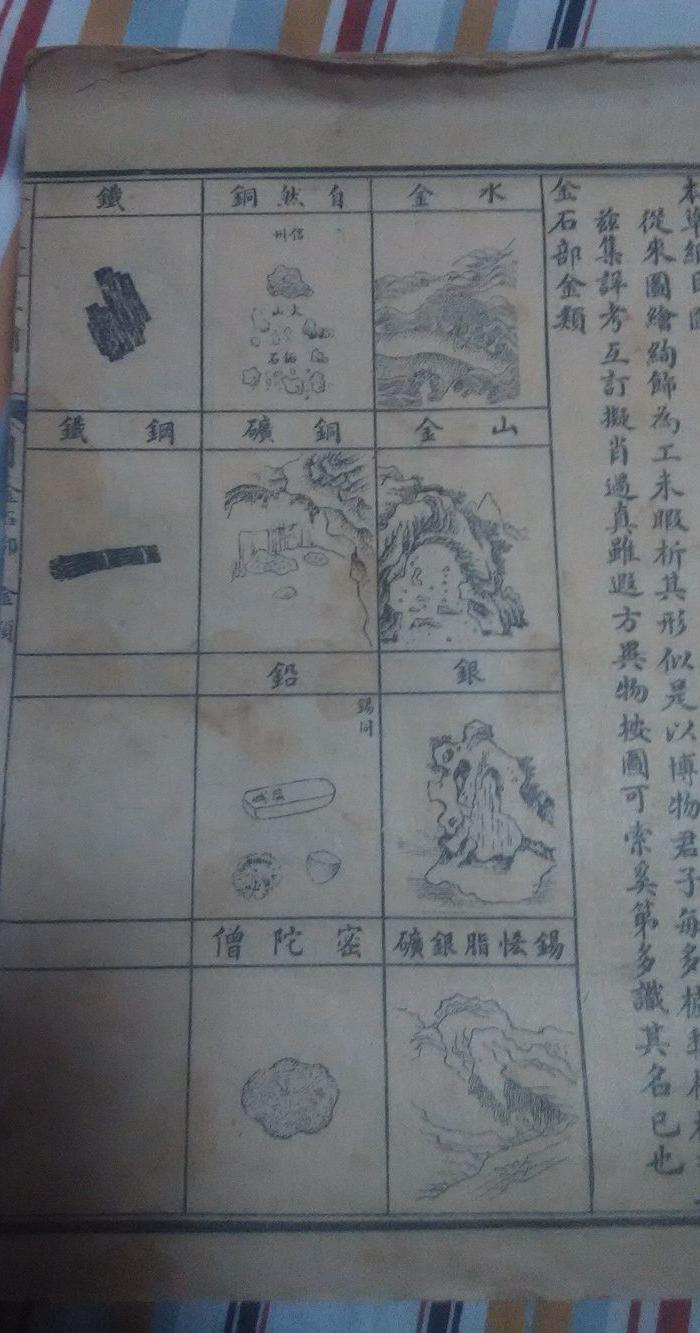 本草綱目圖
從來圖繪絢飾為工未暇析其形似是以博物君子每多
茲集詳考互訂擬肖逼真雖遐方異物按圖可索奚第多識其名已也
金石部金類
水金
山金
銀
錫恡脂銀礦
自然銅
信州
銅礦
鉛
錫同
密陀僧
鐵
鋼鐵
金石部 金類